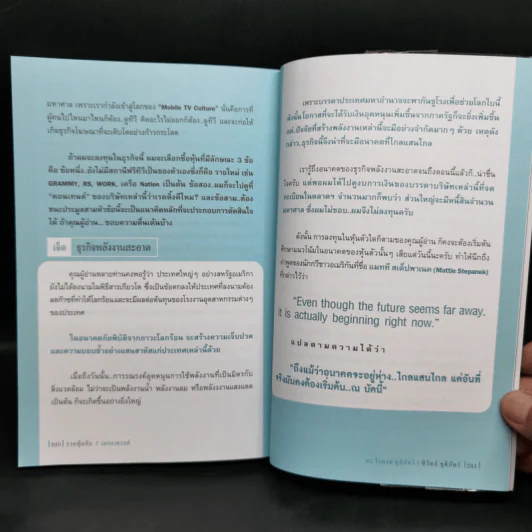 มหาศาล เพราะเรากำลังเข้าสู่โลกของ "Mobile TV Culture" นั่นคือการที่
ผู้คนไปไหนมาไหนก็ต้อง..ดูทีวี คิดอะไรไม่ออกก็ต้อง..ดูทีวี และจะก่อให้
เกิดธุรกิจโฆษณาที่จะเติบโตอย่างก้าวกระโดด
ถ้าผมจะลงทุนในธุรกิจนี้ ผมจะเลือกซื้อหุ้นที่มีลักษณะ 3 ข้อ
คือ ข้อหนึ่ง..ยังไม่มีสถานีฟรีทีวีเป็นของตัวเองซึ่งก็คือ รายใหม่ เช่น
GRAMMY, RS, WORK, เครือ Nation เป็นต้น ข้อสอง..ผมก็จะไปดูที่
"คอนเทนต์" ของบริษัทเหล่านี้ว่าเรตติ้งดีไหม? และข้อสาม..ต้อง
ชนะประมูลสามตัวข้อนี้จะเป็นแนวคิดหลักที่จะประกอบการตัดสินใจ
ได้ ถ้าคุณผู้อ่าน... ชอบความตื่นเต้นบ้าง
เจ็ด ธุรกิจพลังงานสะอาด
คุณผู้อ่านหลายท่านคงพอรู้ว่า ประเทศใหญ่ๆ อย่างสหรัฐอเมริกา
ยังไม่ได้ลงนามในพิธีสารเกียวโต ซึ่งเป็นข้อตกลงให้ประเทศที่ลงนามต้อง
ลดก๊าซที่ทำให้โลกร้อนและจะมีผลต่อต้นทุนของโรงงานอุตสาหกรรมต่างๆ
ของประเทศ
ในอนาคตภัยพิบัติจากภาวะโลกร้อน จะสร้างความเจ็บปวด
และความบอบช้ำอย่างแสนสาหัสแก่ประเทศเหล่านี้ด้วย
เมื่อถึงวันนั้น..การรณรงค์อุดหนุนการใช้พลังงานที่เป็นมิตรกับ
สิ่งแวดล้อม ไม่ว่าจะเป็นพลังงานน้ำ พลังงานลม หรือพลังงานแสงแดด
เป็นต้น ก็จะเกิดขึ้นอย่างยิ่งใหญ่
เพราะบรรดาประเทศมหาอำนาจจะพากันชูโรงเพื่อช่วยโลกใบนี้
ดังนั้นโอกาสที่จะได้รับเงินอุดหนุนเพิ่มขึ้นจากภาครัฐก็จะยิ่งเพิ่มขึ้น
แต่..ปัจจัยที่สร้างพลังงานเหล่านี้จะมีอย่างจำกัดมากๆ ด้วย เหตุดัง
กล่าว..ธุรกิจนี้จึงน่าที่จะมีอนาคตที่ไกลแสนไกล
เรารู้ถึงอนาคตของธุรกิจพลังงานสะอาดจนถึงตอนนี้แล้วก็..น่าชื่น
ใจครับ แต่พอผมได้ไปดูงบการเงินของบรรดาบริษัทเหล่านี้ที่จด
ทะเบียนในตลาดฯ จำนวนมากก็พบว่า ส่วนใหญ่จะมีหนี้สินจำนวน
มหาศาล ซึ่งผมไม่ชอบ..ผมจึงไม่ลงทุนครับ
ดังนั้น การลงทุนในหุ้นตัวใดก็ตามของคุณผู้อ่าน ก็คงจะต้องเริ่มต้น
ศึกษาแนวโน้มในอนาคตของหุ้นตัวนั้นๆ เสียแต่วันนี้นะครับ ทำให้นึกถึง
คำพูดของนักกวีชาวอเมริกันที่ชื่อ แมททีย์ สเต็ปพาเนค (Mattie Stepanek)
ที่กล่าวไว้ว่า
"Even though the future seems far away.
it is actually beginning right now."
แปลตามความได้ว่า
"ถึงแม้ว่าอนาคตจะอยู่ห่าง..ไกลแสนไกล แต่อันที่
จริงมันคงต้องเริ่มต้น..ณ บัดนี้"